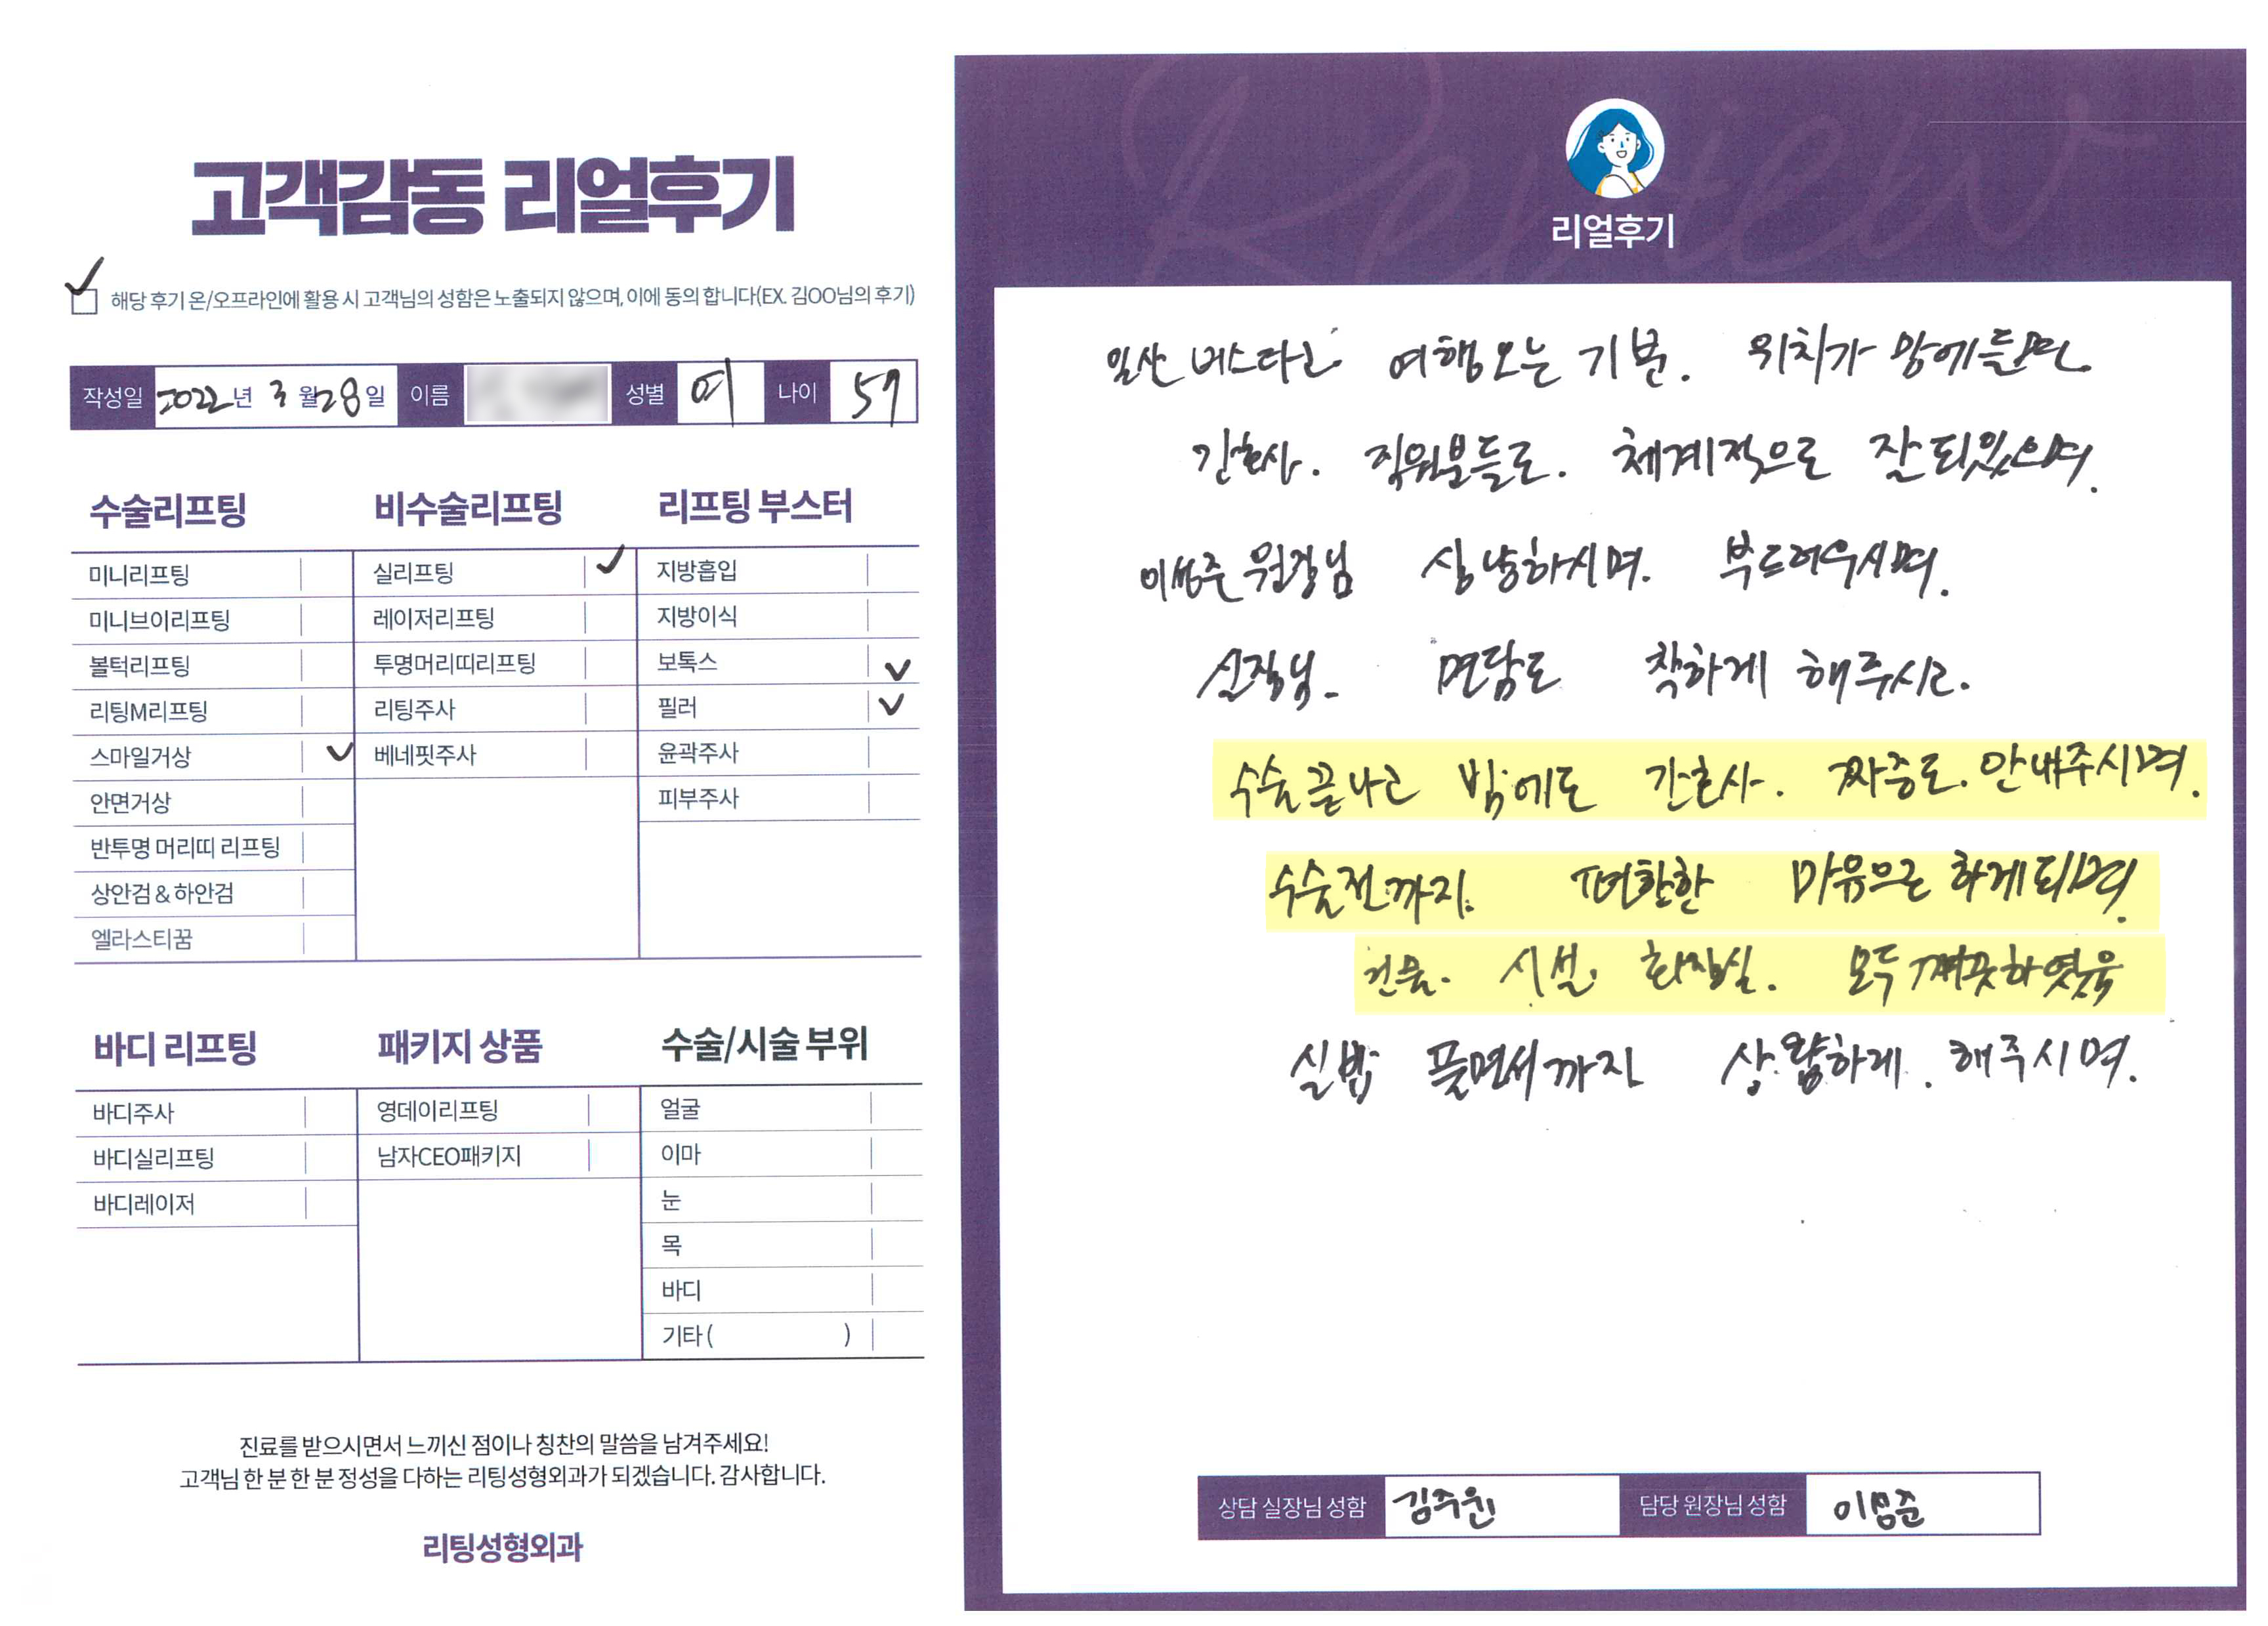 고객감동 리얼후기
해당 후기 온/오프라인에 활용 시 고객님의 성함은 노출되지 않으며, 이에 동의 합니다(EX. 김OO님의 후기)
작성일 2022년 3월 28일 이름 성별 여 나이 59
수술리프팅
미니리프팅
미니브이리프팅
볼턱리프팅
리팅M리프팅
스마일거상
안면거상
반투명 머리띠 리프팅
상안검 & 하안검
엘라스티꿈
비수술리프팅
실리프팅
레이저리프팅
투명머리띠리프팅
리팅주사
베네핏주사
리프팅 부스터
지방흡입
지방이식
보톡스
필러
윤곽주사
피부주사
바디 리프팅
바디주사
바디실리프팅
바디레이저
패키지 상품
영데이리프팅
남자CEO패키지
수술/시술 부위
얼굴
이마
눈
목
바디
기타 ( )
진료를 받으시면서 느끼신 점이나 칭찬의 말씀을 남겨주세요!
고객님 한 분 한 분 정성을 다하는 리팅성형외과가 되겠습니다. 감사합니다.
리팅성형외과
Review
리얼후기
일산 버스타고 여행오는 기분. 위치가 맘에들며.
간호사. 직원분들도. 체계적으로 잘되있으며.
이성준 원장님 상냥하시며. 부드러우시며.
실장님. 면담도 착하게 해주시고.
수술끝나고 밤에도 간호사. 짜증도. 안내주시며.
수술전까지. 편한한 마음으로 하게되며.
건물. 시설. 화장실. 모두 깨끗하였음
실밥 풀면서까지 상냥하게. 해주시며.
상담 실장님 성함 김주원 담당 원장님 성함 이성준